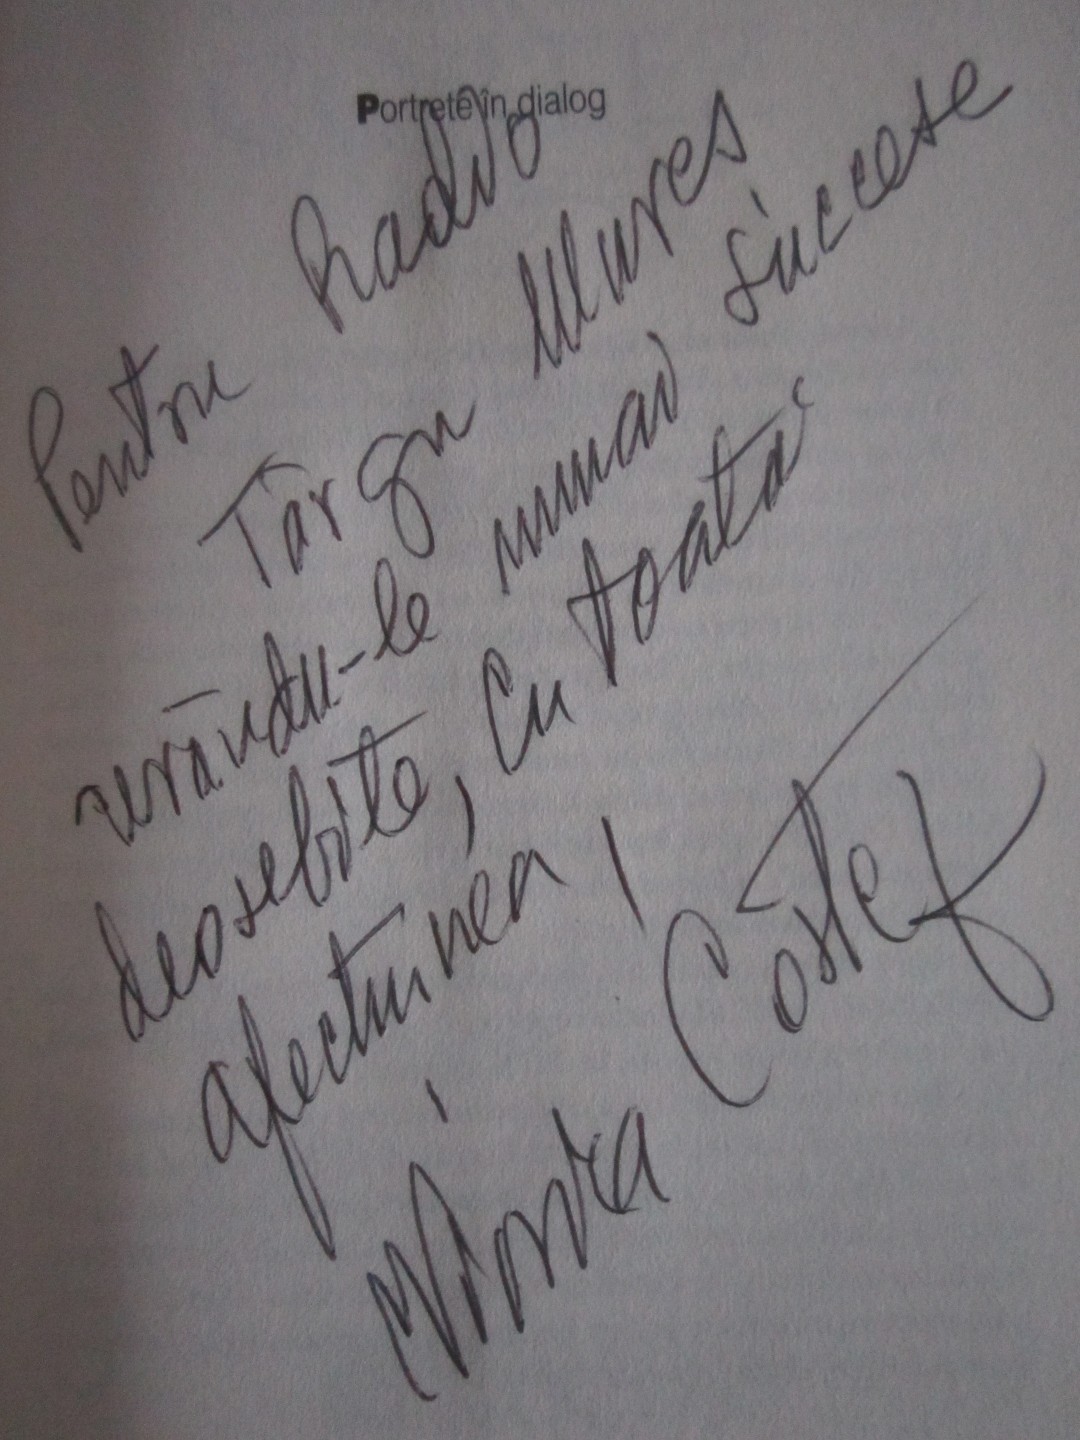 Portrete în dialog
Pentru Radio
Târgu Mureș
urându-le numai succese
deosebite, cu toată
afecțiunea,
Viorica Costef